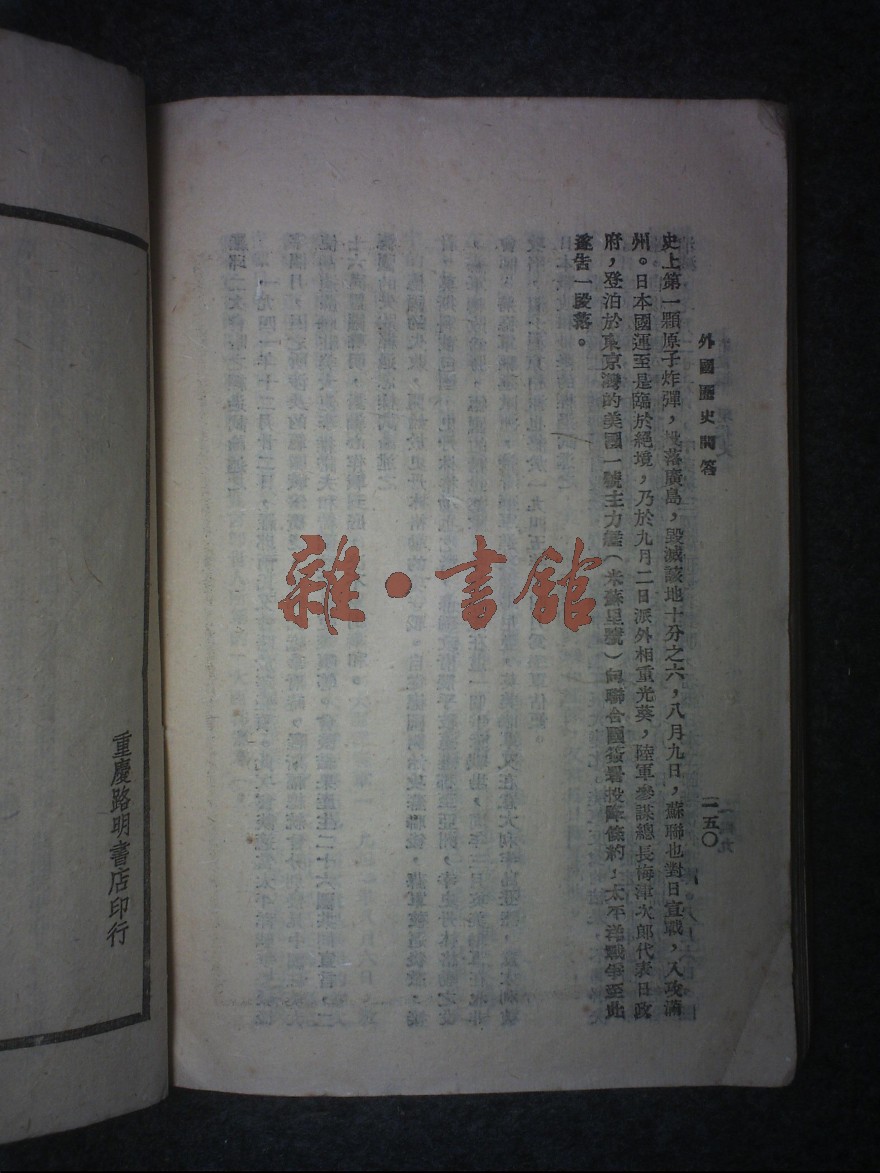 外國歷史問答
二五〇
史上第一顆原子炸彈，投落廣島，毀滅該地十分之六，八月九日，蘇聯也對日宣戰，入攻滿
州。日本國運至是臨於絕境，乃於九月二日派外相重光葵，陸軍參謀總長梅津次郎代表日政
府，登泊於東京灣的美國一號主力艦（米蘇里號）向聯合國簽署投降條約，太平洋戰爭至此
遂告一段落。
雜·書館
重慶路明書店印行